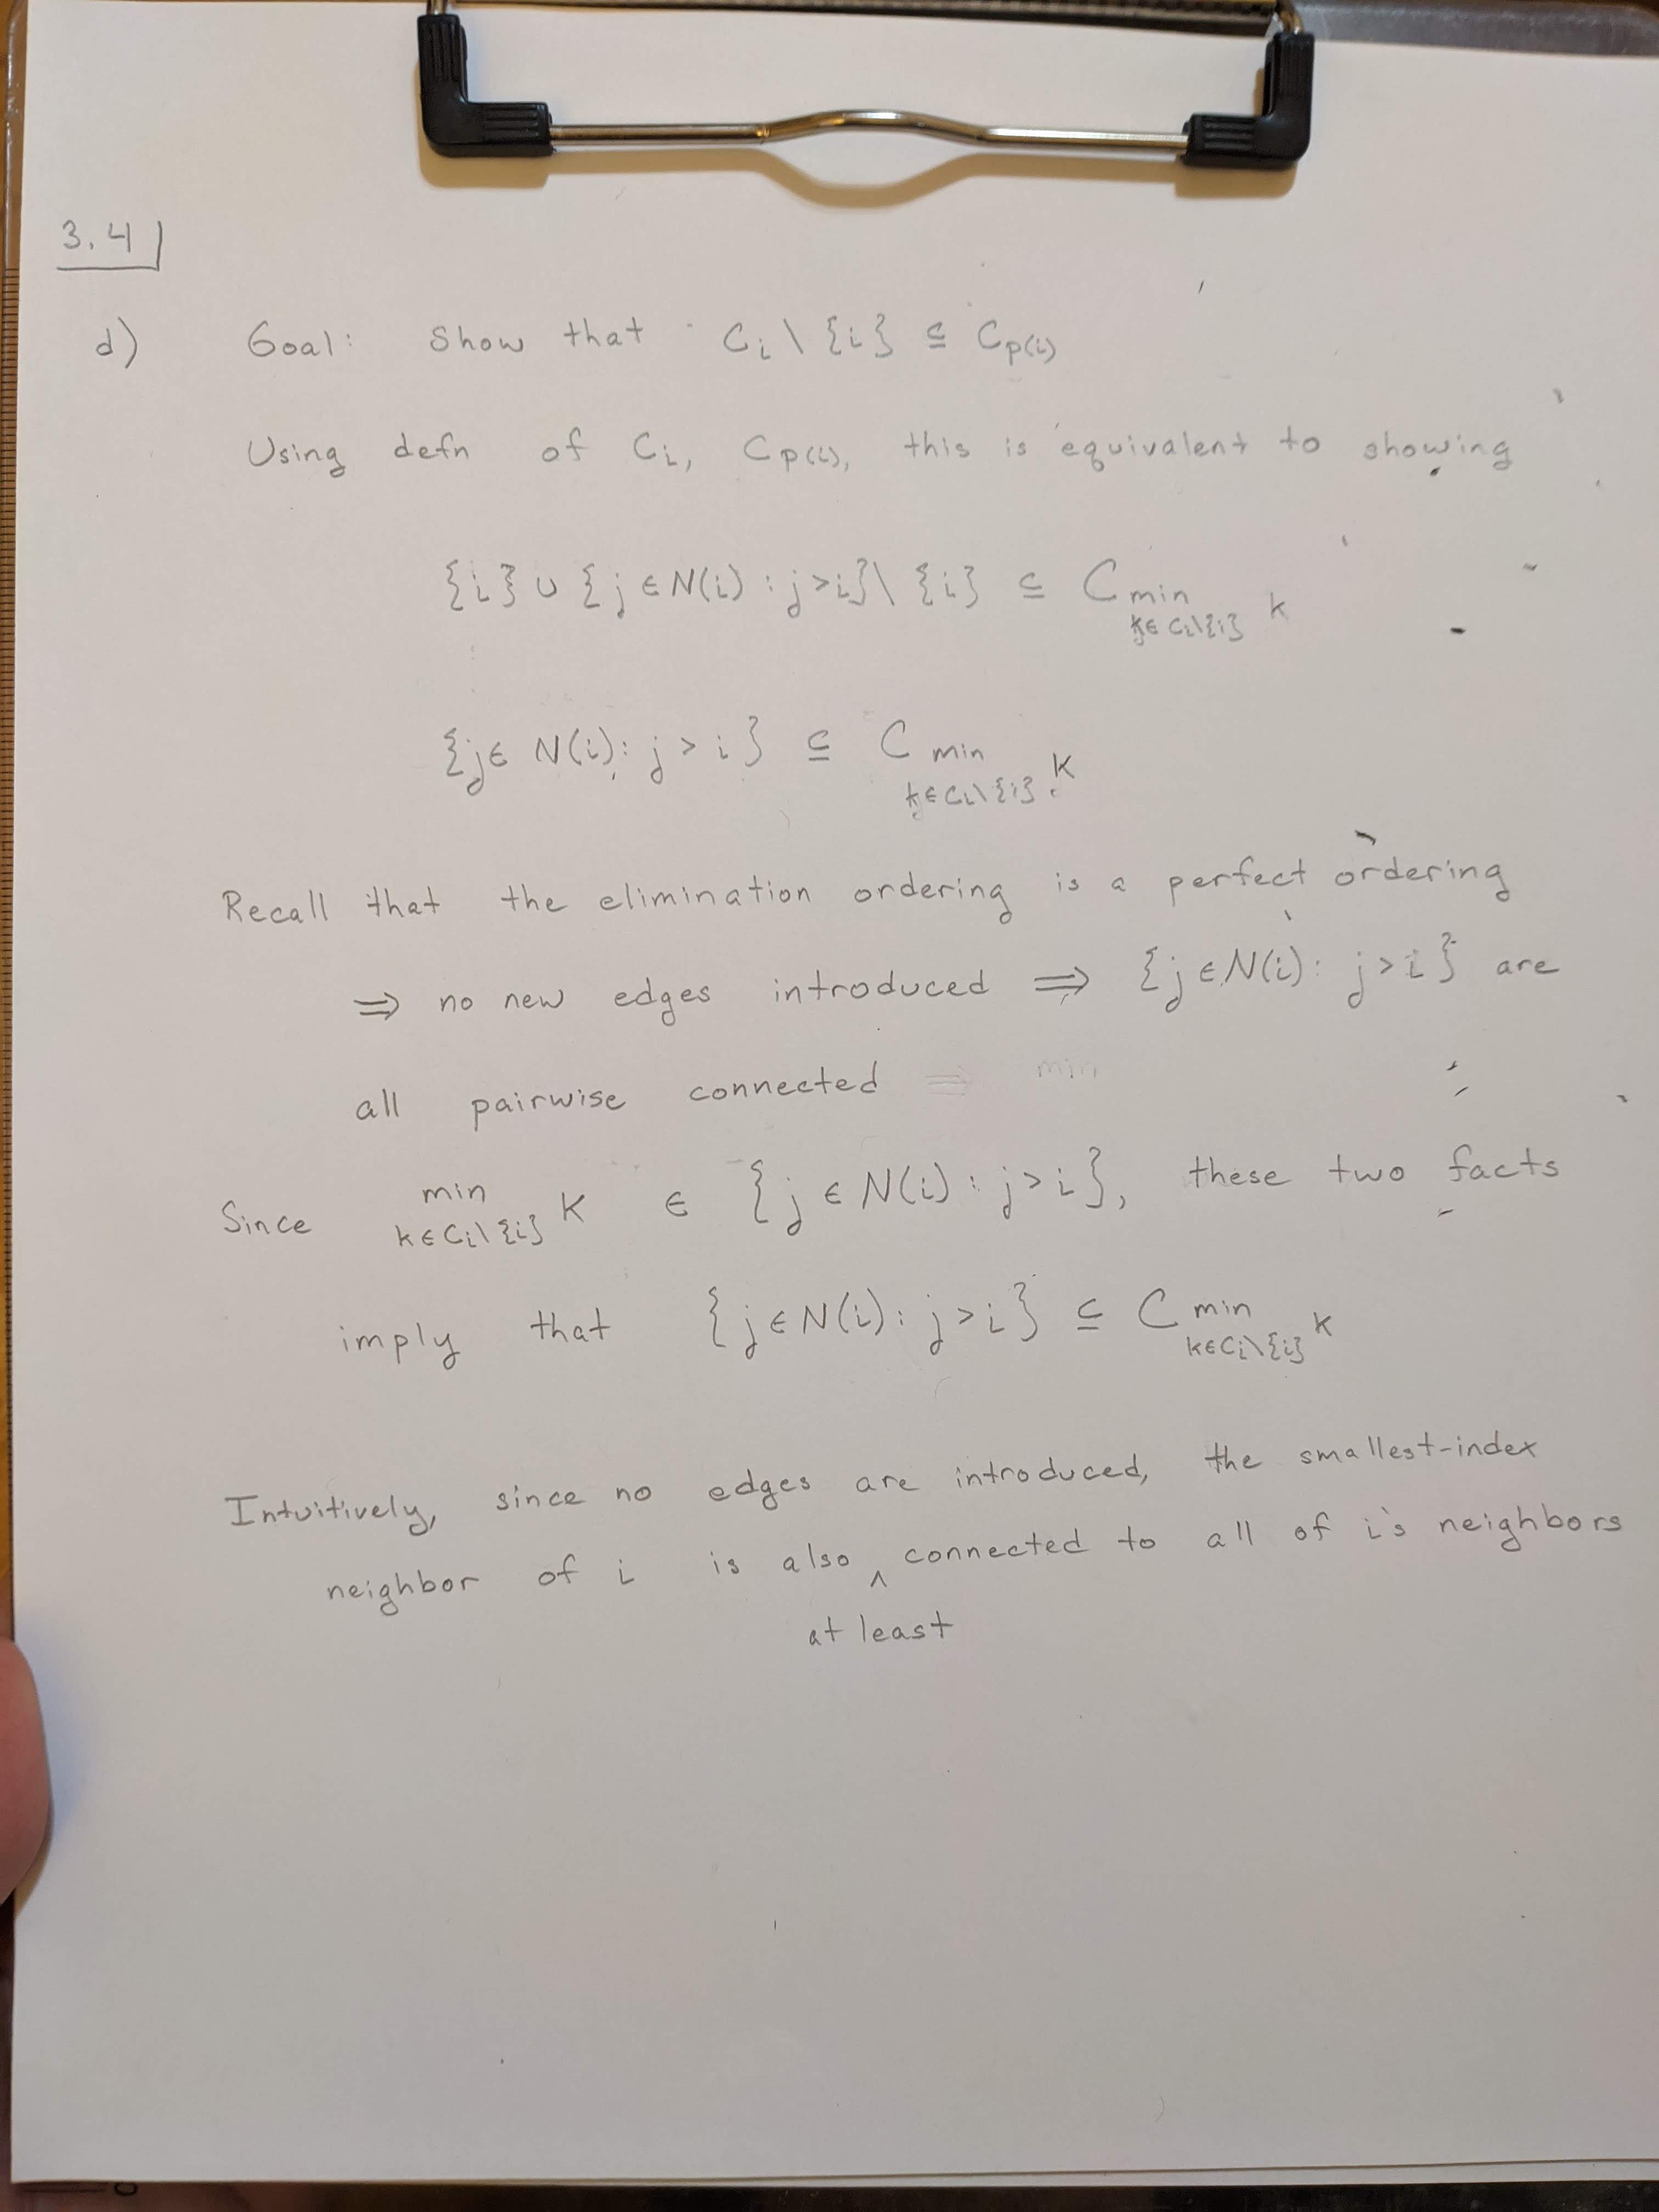 3.4
d) Goal: Show that C_i \ {i} ⊆ C_p(i)
Using defn of C_i, C_p(i), this is equivalent to showing
{i} ∪ {j ∈ N(i) : j > i} \ {i} ⊆ C_min k
k ∈ C_i\{i}
{j ∈ N(i) : j > i} ⊆ C_min k
k ∈ C_i\{i}
Recall that the elimination ordering is a perfect ordering
⇒ no new edges introduced ⇒ {j ∈ N(i) : j > i} are
all pairwise connected
Since min k ∈ {j ∈ N(i) : j > i}, these two facts
k ∈ C_i\{i}
imply that {j ∈ N(i) : j > i} ⊆ C_min k
k ∈ C_i\{i}
Intuitively, since no edges are introduced, the smallest-index
neighbor of i is also ^ connected to all of i's neighbors
at least